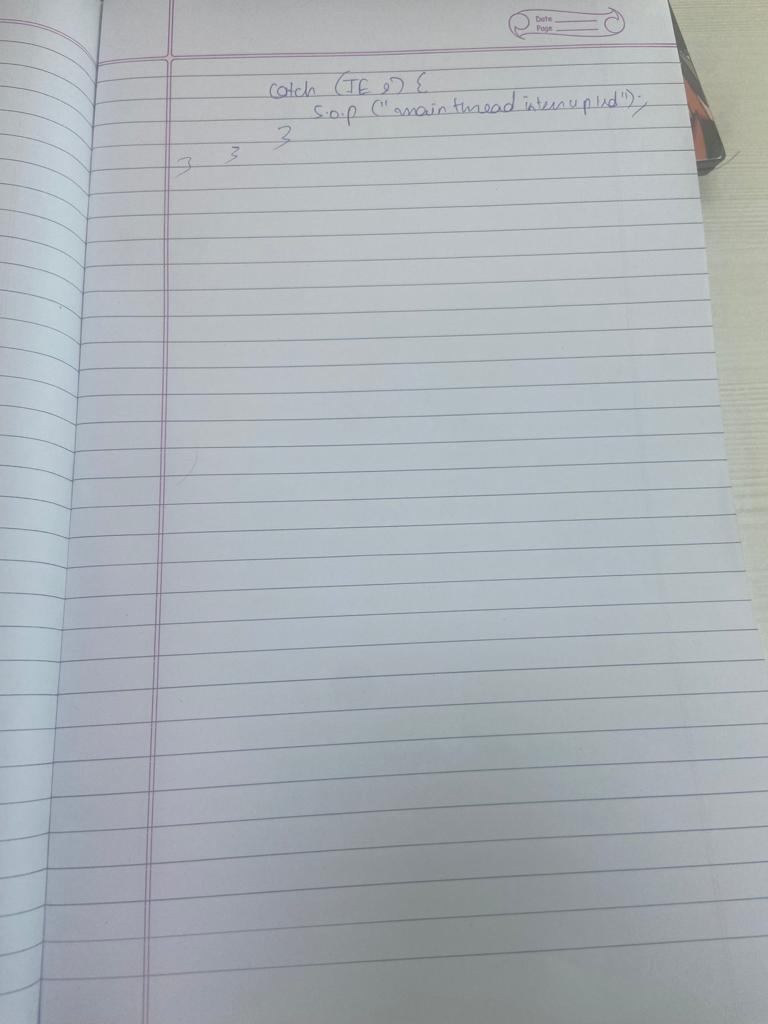 Date
Page
catch (IE e) {
S.o.p ("main thread interrupted");
}
}
}